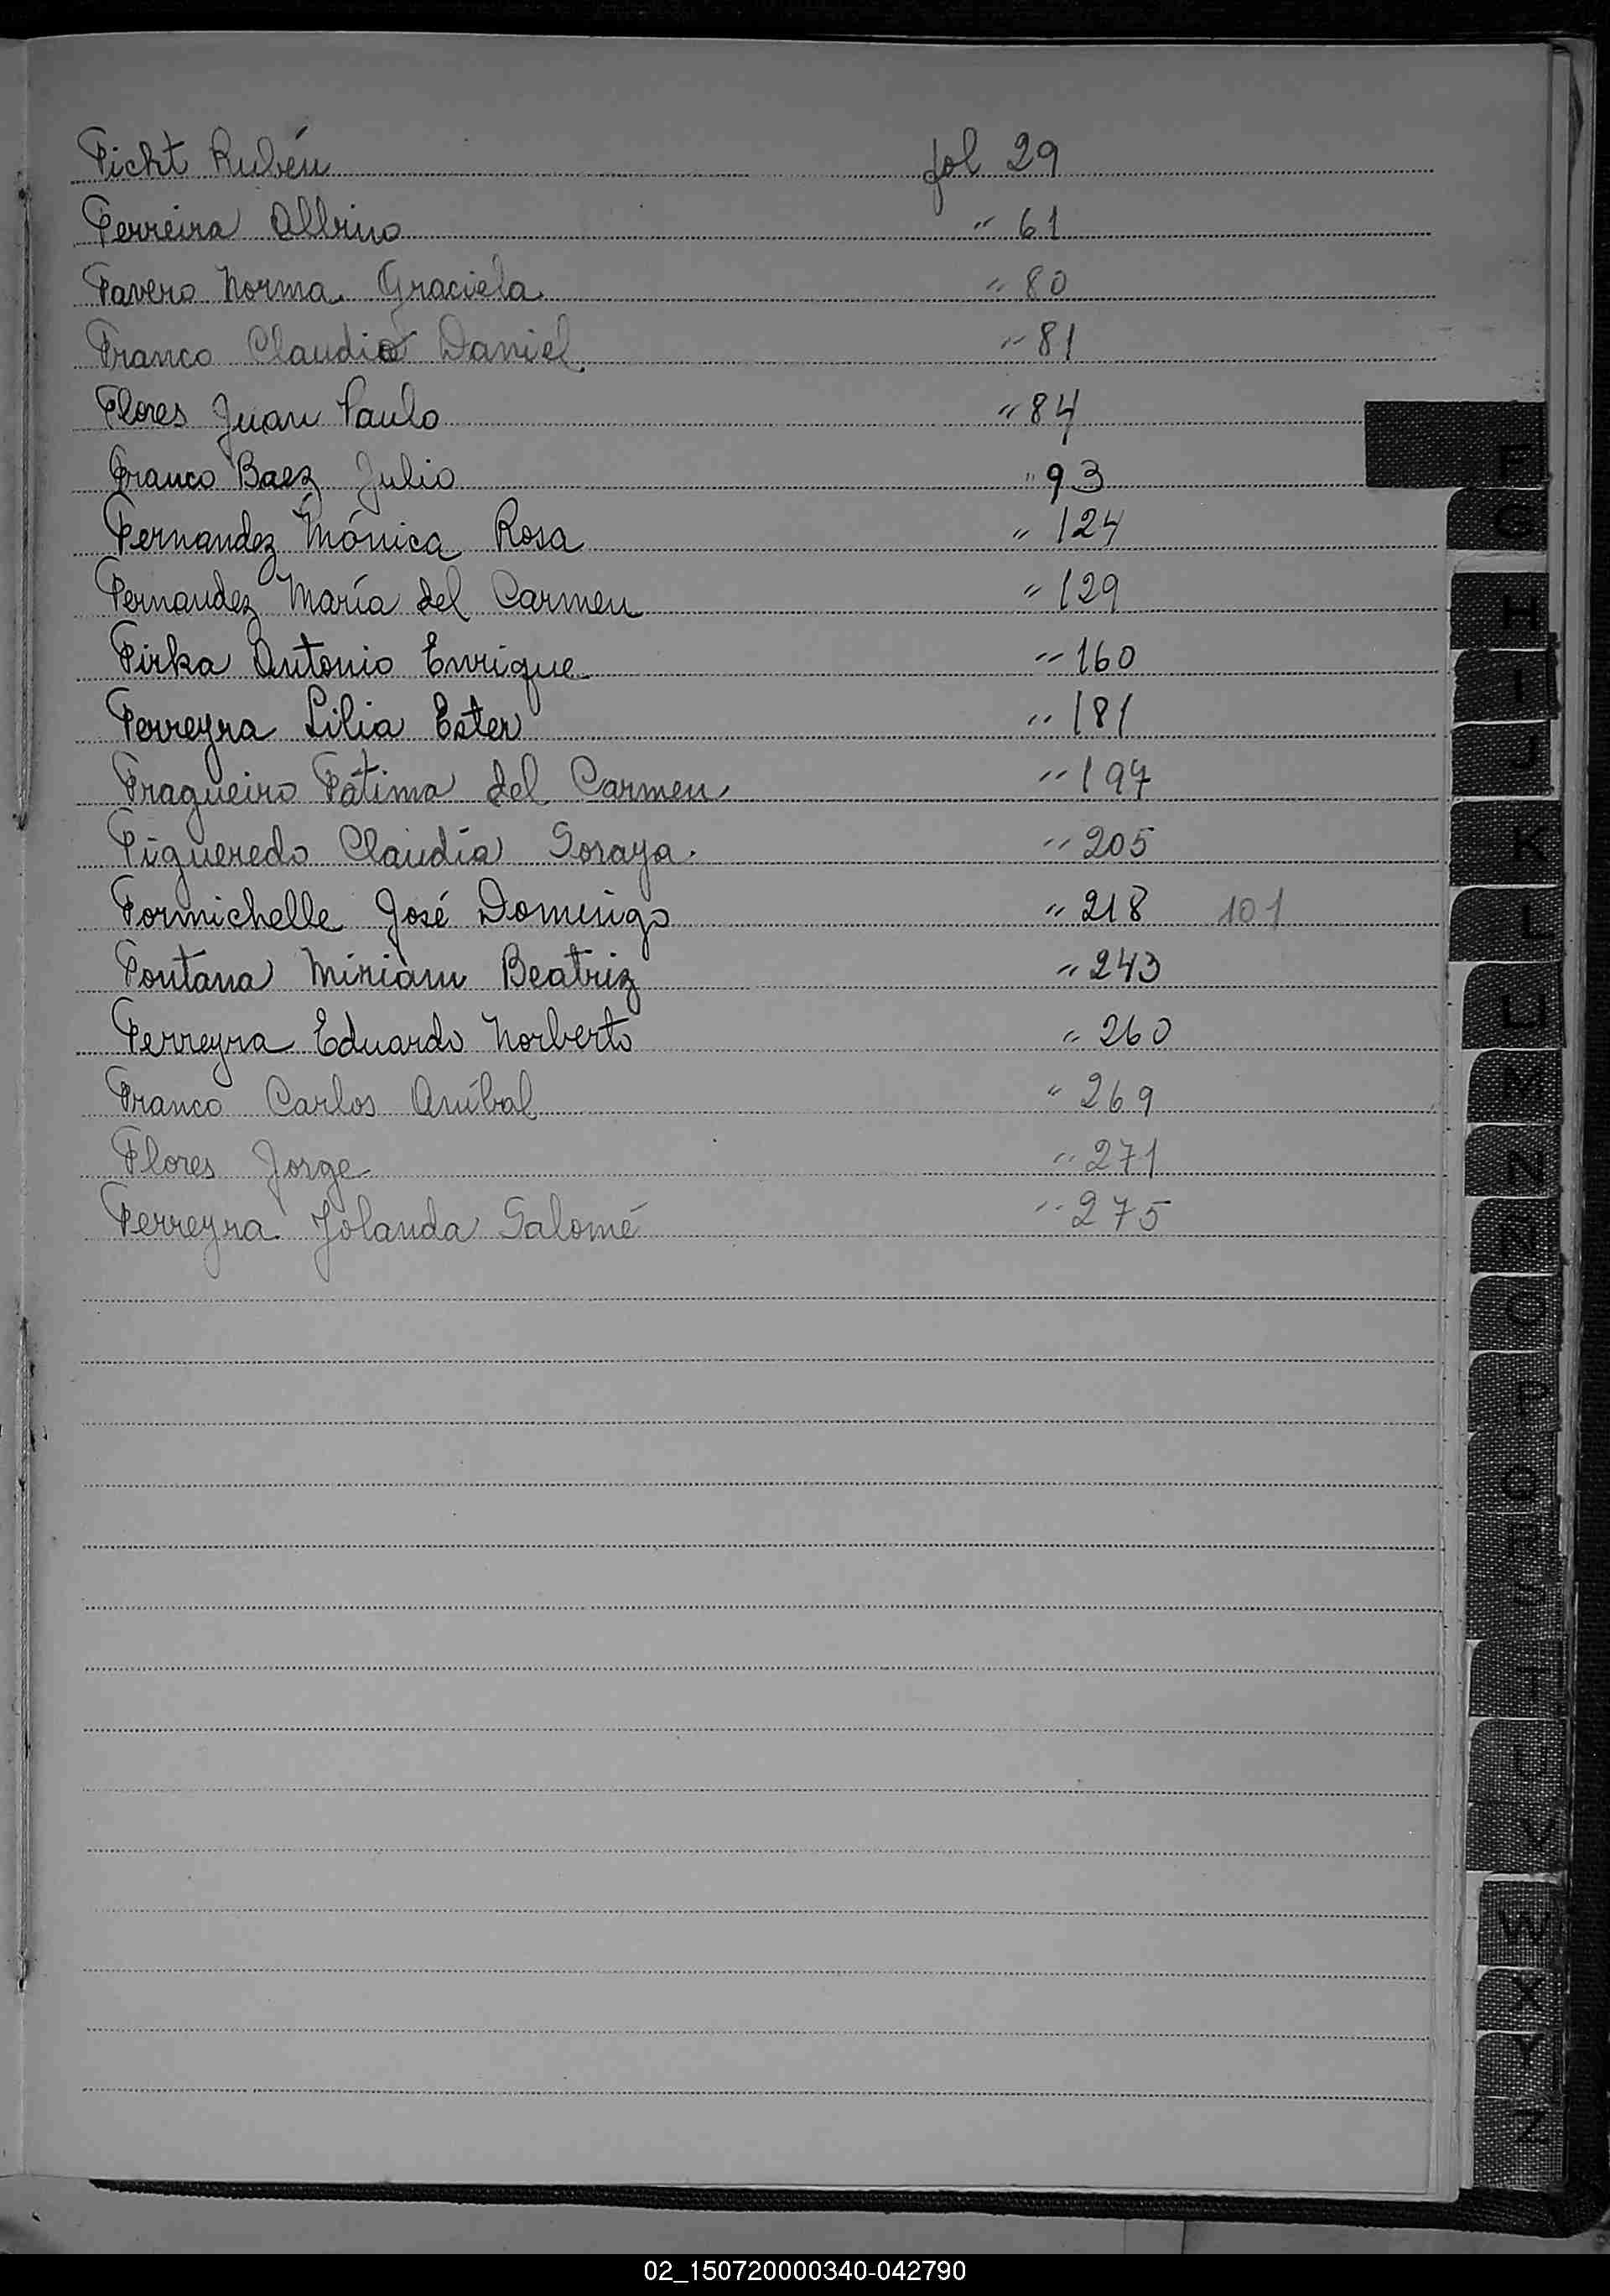 Ficht Rubén fol 29
Ferreira Albino " 61
Favero Norma Graciela " 80
Franco Claudio Daniel " 81
Flores Juan Paulo " 84
Franco Baez Julio " 93
Fernandez Mónica Rosa " 124
Fernandez María del Carmen " 129
Firka Antonio Enrique " 160
Ferreyra Lilia Ester " 181
Fragueiro Fátima del Carmen " 197
Figueredo Claudia Soraya " 205
Formichelle José Domingo " 218 101
Fontana Miriam Beatriz " 243
Ferreyra Eduardo Norberto " 260
Franco Carlos Aníbal " 269
Flores Jorge " 271
Ferreyra Yolanda Salomé " 275
F
G
H
I
J
K
L
LL
M
N
Ñ
O
P
Q
R
S
T
U
V
W
X
Y
Z
02_150720000340-042790